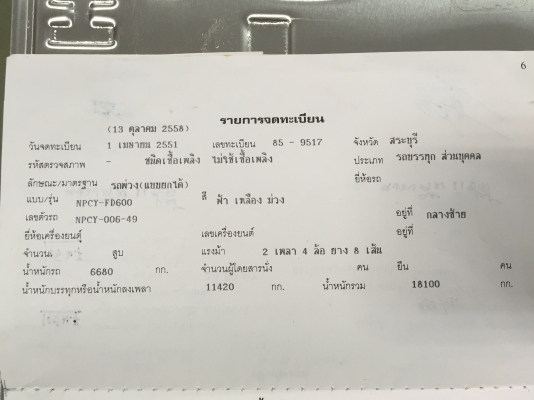 6
รายการจดทะเบียน
(13 ตุลาคม 2558)
วันจดทะเบียน 1 เมษายน 2551 เลขทะเบียน 85 - 9517 จังหวัด สระบุรี
รหัสตรวจสภาพ - ชนิดเชื้อเพลิง ไม่ใช้เชื้อเพลิง ประเภท รถบรรทุก ส่วนบุคคล
ลักษณะ/มาตรฐาน รถพ่วง(แยกยกได้) ยี่ห้อรถ
แบบ/รุ่น NPCY-FD600 สี ฟ้า เหลือง ม่วง
เลขตัวรถ NPCY-006-49 อยู่ที่ กลางซ้าย
ยี่ห้อเครื่องยนต์ เลขเครื่องยนต์ อยู่ที่
จำนวน สูบ แรงม้า 2 เพลา 4 ล้อ ยาง 8 เส้น
น้ำหนักรถ 6680 กก. จำนวนผู้โดยสารนั่ง คน ยืน คน
น้ำหนักบรรทุกหรือน้ำหนักลงเพลา 11420 กก. น้ำหนักรวม 18100 กก.